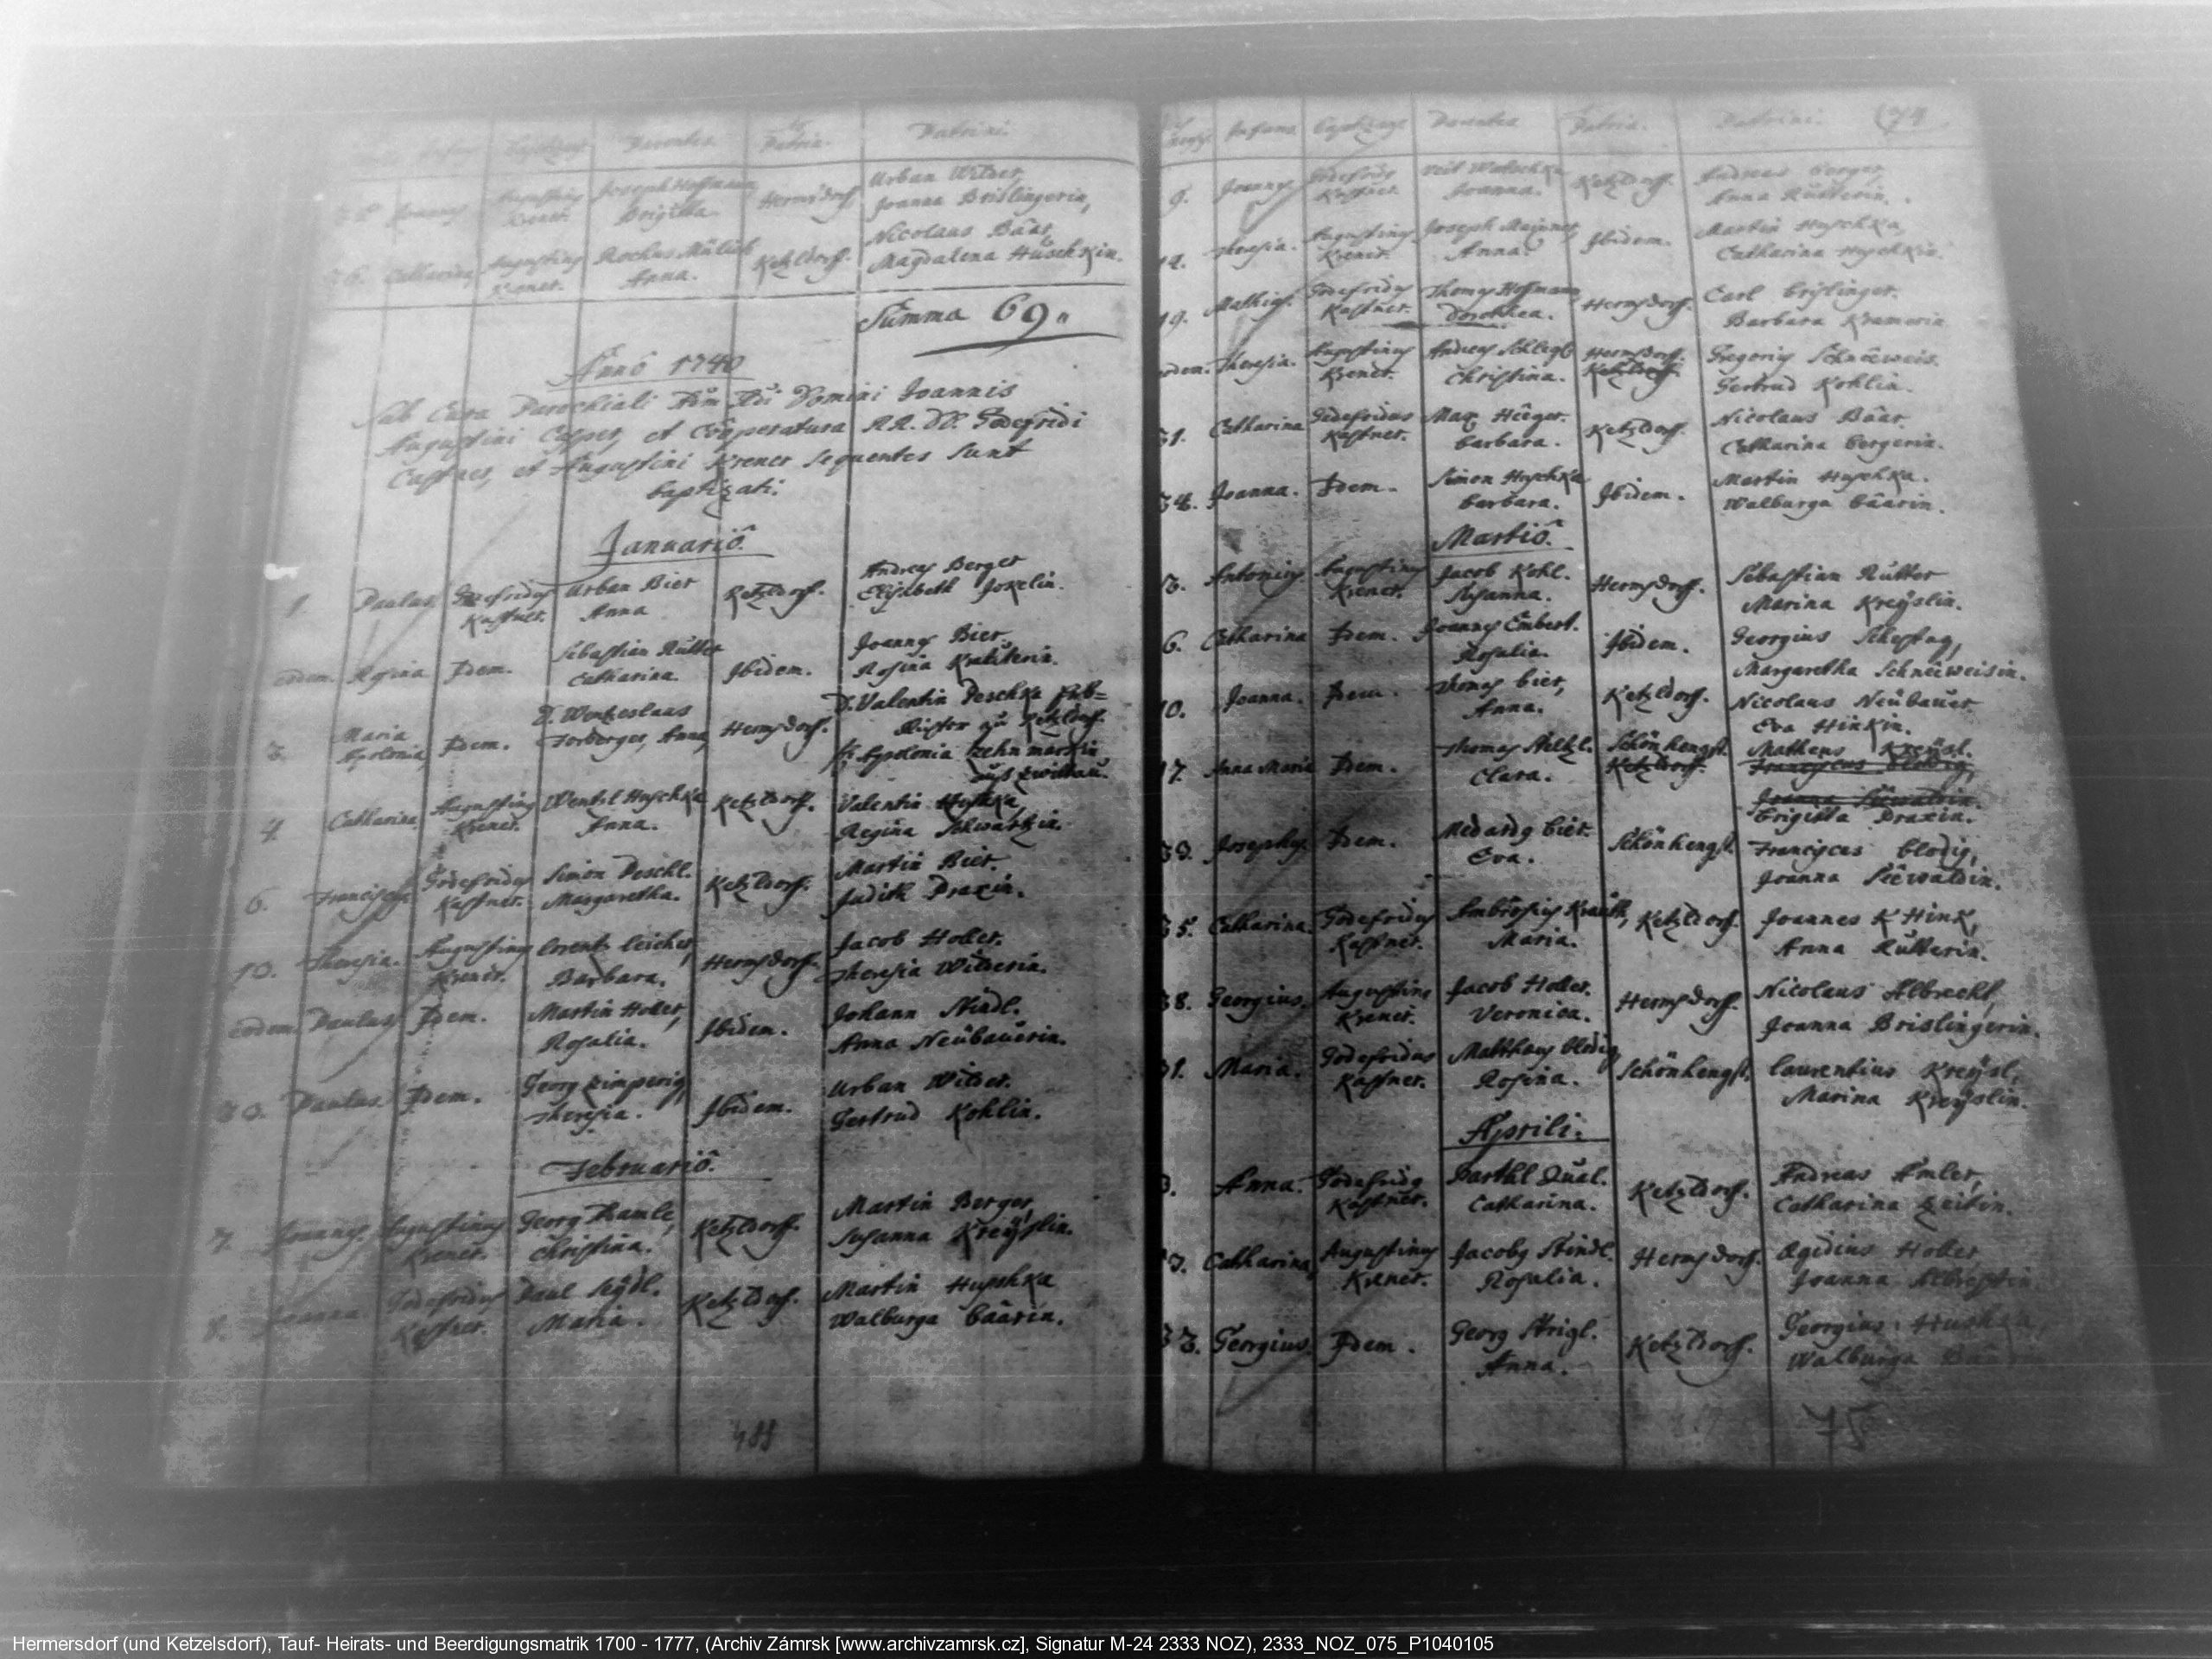 Parentes. Patria. Patrini.
Joannes Augustiny Krener. Joseph Hoffmann Brigitta Hermsdorf Urban Wilder, Joanna Brislingerin,
Catharina Augustiny Krener. Rochus Anna. Ketzldorf. Nicolaus Bäar, Magdalena Huschkin.
Summa 69
Annô 1740
Sub Cura Parochiali Domini Joannis
Augustini Casper, et Coôperatura RR. DD. Godefridi
Castner, et Augustini Krener sequentes sunt
baptizati.
Januariô.
1. Paulus Godefridy Kastner. Urban Bier Anna Ketzldorf. Andreas Berger Elisabeth Jokelin.
eodem. Rosina Idem. Sebastian Rutter Catharina. Ibidem. Joannes Bier, Rosina
3. Maria Apolonia, Idem. D. Wentzeslaus Forberger, Anna, Hermsdorf. D. Valentin Peschka
zu Ketzldorf.
Apolonia
aus Zwittau.
4 Catharina, Augustiny Krener. Wentzl Huschka Anna. Ketzldorf. Valentin Huschka, Regina Schwartzin.
6. Franciscus Godefridy Kastner. Simon Peschl. Margaretha. Ketzldorf. Martin Bier. Judith Draxin.
10. Theresia. Augustiny Krener. Lorentz Leicher, Barbara, Hermsdorf. Jacob Holler. Theresia Wilderin.
eodem. Paulus Idem. Martin Holler, Rosalia. Ibidem. Johann Nindl. Anna Neubauerin.
Paulus. Idem. Georg Zimperig, Theresia. Ibidem. Urban Wilder. Gertrud Kohlin.
Februariô.
7. Joannes, Augustinus Krener. Georg Christina. Ketzldorf. Martin Berger, Susanna Kreyslin.
8. Joanna. Godefridus Kastner. Paul Seydl. Maria. Ketzldorf. Martin Huschka Walburga Bäärin.
488
Infans. Parentes Patria. Patrini. 74
9. Joannes. Godefrids Kastner. Veit Joanna. Ketzldorf. Andreas Berger, Anna Rutterin.
Theresia. Augustiny Krener. Joseph Anna. Ibidem. Martin Huschka, Catharina Huschkin.
19. Mathias. Godefridy Kastner. Thomas Hoffmann, Dorothea. Hermsdorf. Carl Brislinger. Barbara Kramerin
eodem. Theresia. Augustinus Krener. Andreas Schlegl Christina. Hermsdorf. Ketzldorf. Gregorius Schneeweis. Gertrud Kohlin.
Catharina Godefridus Kastner. Max Heeger. Barbara. Ketzldorf. Nicolaus Bäar. Catharina Bergerin.
Joanna. Idem. Simon Huschka Barbara. Ibidem. Martin Huschka. Walburga Bäarin.
Martiô.
3. Antonius. Augustiny Krener. Jacob Kohl. Susanna. Hermsdorf. Sebastian Rutter Marina Kreyslin.
6. Catharina Idem. Joannes Embert. Rosalia. Ibidem. Georgius Margaretha Schneeweisin.
10. Joanna. Idem. Thomas Bier, Anna. Ketzldorf. Nicolaus Neubauer Eva Hinkin.
17. Anna Maria Idem. Thomas Steltzl. Clara. Schönhengst. Ketzldorf. Matheus Kreysl. Franciscus Blodig, Joanna Seewaldin. Brigitta Draxin.
Josephus. Idem. Medardus Bier. Eva. Schönhengst. Franciscus Blodig, Joanna Seewaldin.
Catharina. Godefridus Kastner. Ambrosius Maria. Ketzldorf. Joannes Hink, Anna Rutterin.
Georgius. Augustiny Krener. Jacob Holler. Veronica. Hermsdorf. Nicolaus Albrecht, Joanna Brislingerin.
Maria. Godefridus Kastner. Matthaus Blodig, Rosina. Schönhengst. Laurentius Kreysl, Marina Kreyslin.
Aprili.
Anna. Godefridy Kastner. Barthl Qual. Catharina. Ketzldorf. Andreas Amler, Catharina Zeitin.
Catharina, Augustiny Krener. Jacobus Stindl. Rosalia. Hermsdorf. Ægidius Holler, Joanna
Georgius. Idem. Georg Strigl. Anna. Ketzldorf. Georgius Huschka, Walburga
75
Hermersdorf (und Ketzelsdorf), Tauf- Heirats- und Beerdigungsmatrik 1700 - 1777, (Archiv Zámrsk [www.archivzamrsk.cz], Signatur M-24 2333 NOZ), 2333_NOZ_075_P1040105